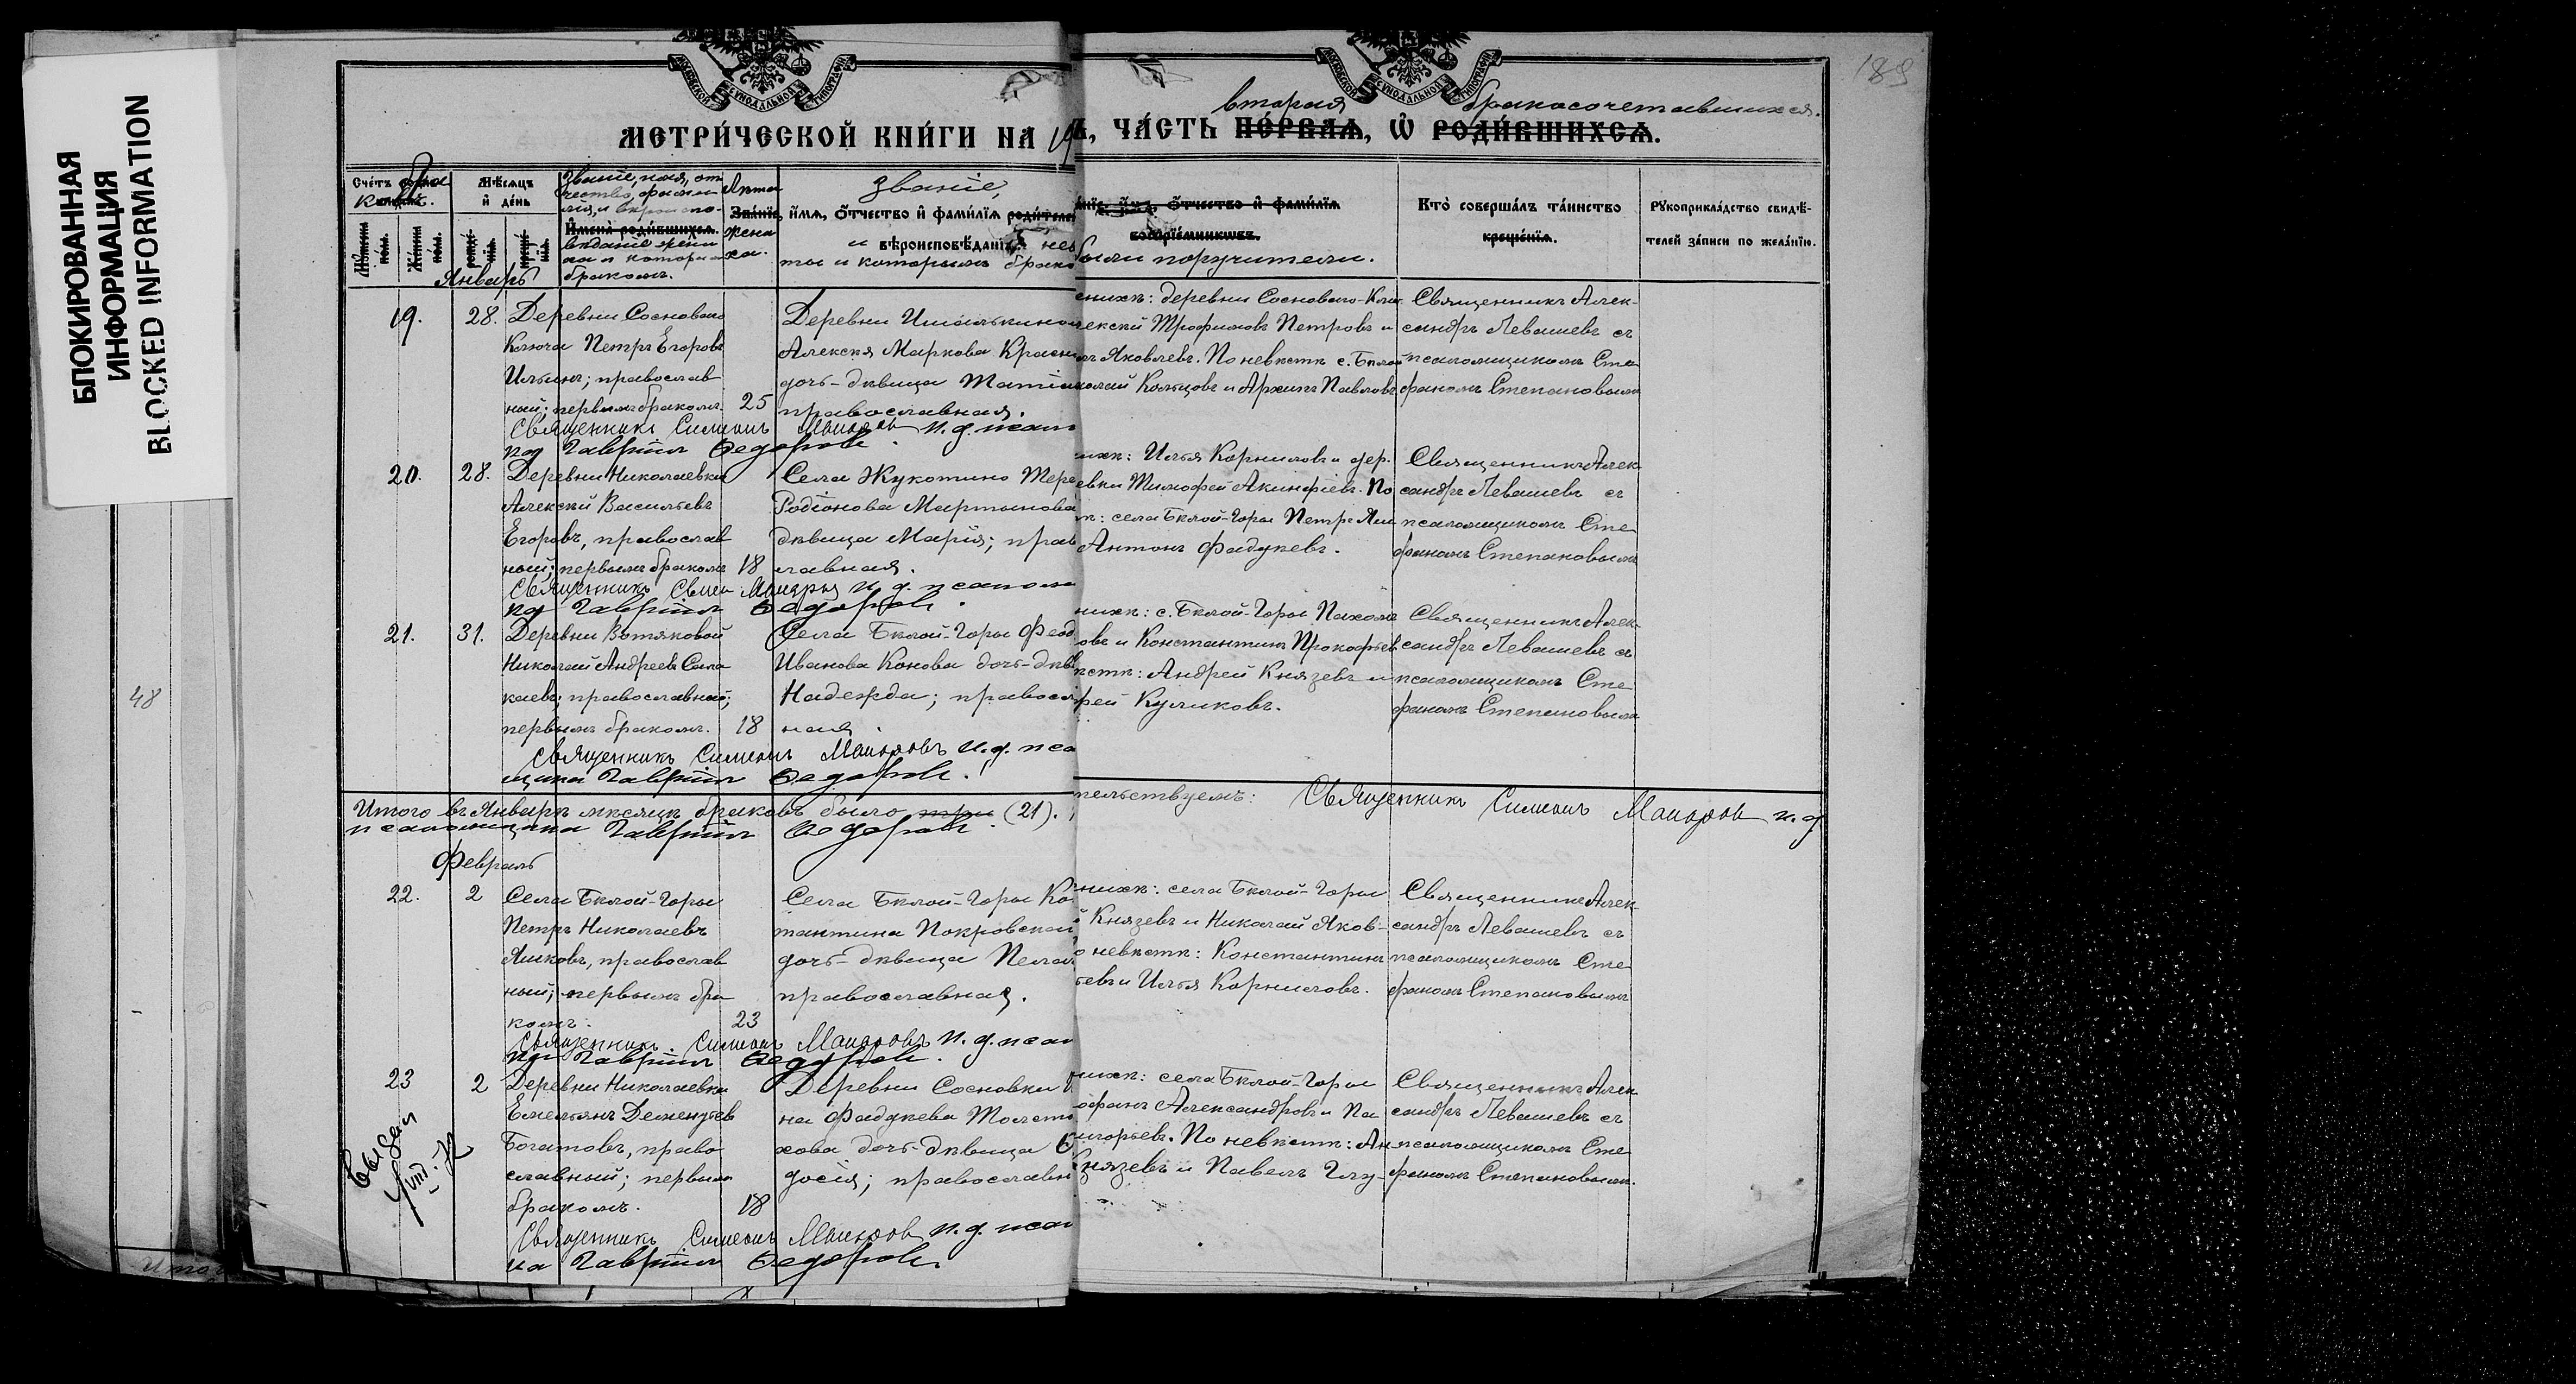 БЛОКИРОВАННАЯ
ИНФОРМАЦИЯ
BLOCKED INFORMATION
48
189
МОСКОВСКОЙ СѴНОДАЛЬНОЙ ТИПОГРАФІИ
МОСКОВСКОЙ СѴНОДАЛЬНОЙ ТИПОГРАФІИ
вторая бракосочетавшихся.
МЕТРИ́ЧЕСКОЙ КНИ́ГИ НА 19
, ЧА́СТЬ ПЕ́РВАЯ, Ѽ РОДИ́ВШИХСЯ.
Счетъ бра
ковъ.
Мѣсяцъ и день
Званіе, имя, от
чество, фами
лія, и вѣроиспо-
Имена родившихся.
вѣданіе жени
ха и которым
бракомъ.
Лѣта
жени
ха.
Званіе,
Званіе, имя, отчество и фамилія родителей
и вѣроисповѣданія нев
ты и которымъ брако
имя, отчество и фамилія
воспріемниковъ.
были поручители.
Кто совершалъ таинство
крещенія.
Рукоприкладство свидѣ-
телей записи по желанію.
Январь
19. 28. Деревни Сосноваго
Ключа Петръ Егоровъ
Ильинъ; православ
ный; первымъ бракомъ. 25
Деревни Ишалькино
Алексѣя Маркова Красн
дочь-дѣвица Татіа
православная.
енихѣ: деревни Сосноваго-Клю
лексѣй Трофимовъ Петровъ и
ъ Яковлевъ. По невѣстѣ с. Бѣлой
колай Кольцовъ и Архипъ Павловъ
Священникъ Алек-
сандръ Левашевъ съ
псаломщикомъ Сте
фаномъ Степановымъ
Священникъ Симеонъ Маіоровъ и. д. псал
Гавріилъ Ѳедоровъ.
20. 28. Деревни Николаевки
Алексѣй Васильевъ
Егоровъ, православ
ный; первымъ бракомъ 18
Села Жукотино Тере
Родіонова Мартынова
дѣвица Марія; прав
лавная.
ихѣ: Илья Корниловъ и дер.
евки Тимофей Акинфіевъ. По
ѣ: села Бѣлой-Горы Петръ Яш
Антонъ Фадѣевъ.
Священникъ Алек
сандръ Левашевъ съ
псаломщикомъ Сте
фаномъ Степановымъ
Священникъ Симеонъ Маіоровъ и. д. псалом
Гавріилъ Ѳедоровъ.
21. 31. Деревни Вотяковой
Николай Андреевъ Сала
каевъ; православный;
первымъ бракомъ. 18
Села Бѣлой-Горы Феод
Иванова Конова дочь-дѣв
Надежда; правосл
ная.
нихѣ: с. Бѣлой-Горы Пахомъ
овъ и Константинъ Прокофьев
ѣстѣ: Андрей Князевъ и
рей Куликовъ.
Священникъ Алек-
сандръ Левашевъ съ
псаломщикомъ Сте
фаномъ Степановымъ
Священникъ Симеонъ Маіоровъ и. д. пса
щика Гавріилъ Ѳедоровъ.
Итого въ Январѣ мѣсяцѣ браковъ было три (21).
тельствуемъ: Священникъ Симеонъ Маіоровъ и. д
псаломщика Гавріилъ Ѳедоровъ.
Февраль
22. 2 Села Бѣлой-Горы
Петръ Николаевъ
Яшковъ, православ
ный; первымъ бра
комъ. 23
Села Бѣлой-Горы Ко
тантина Покровскаи
дочь-дѣвица Пелаг
православная.
нихѣ: села Бѣлой-Горы
й Князевъ и Николай Яков-
о невѣстѣ: Константинъ
евъ и Илья Корниловъ.
Священникъ Алек-
сандръ Левашевъ съ
псаломщикомъ Сте
фаномъ Степановымъ
Священникъ Симеонъ Маіоровъ и. д. псал
Гавріилъ Ѳедоровъ.
23 2 Деревни Николаевки
Емельянъ Дементьев
Богатовъ, право
славный; первым
бракомъ. 18
Деревни Сосновки
на Фадѣева Толст
хова дочь-дѣвица
досія; православн
нихѣ: села Бѣлой-Горы
офанъ Александровъ и Па
игорьевъ. По невѣстѣ: Ан
Князевъ и Павелъ Глу-
Священникъ Алек
сандръ Левашевъ съ
псаломщикомъ Сте
фаномъ Степановымъ.
Священникъ Симеонъ Маіоровъ и. д. псал
ка Гавріилъ Ѳедоровъ